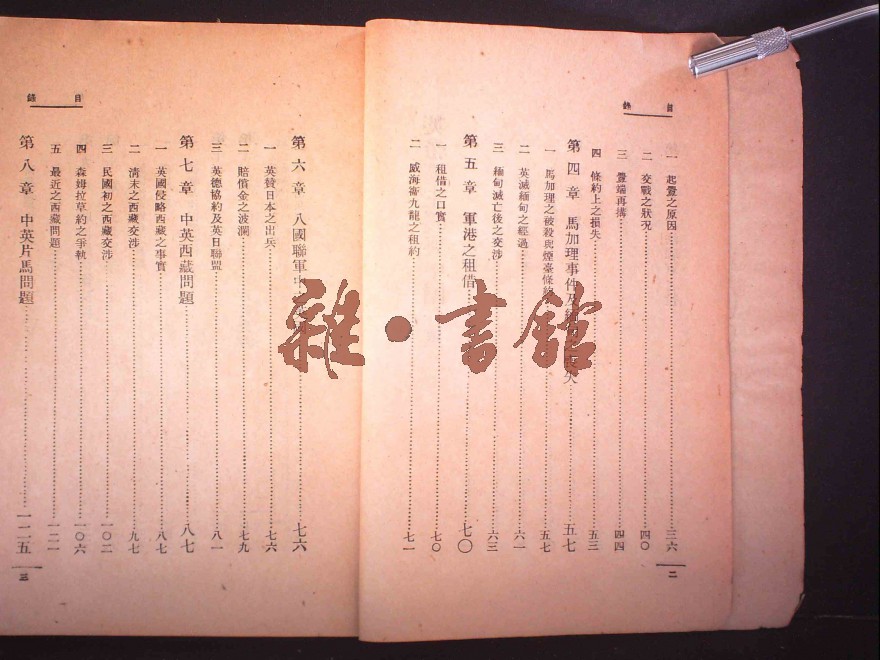 目錄
一　起釁之原因……三六
二　交戰之狀況……四〇
三　釁端再搆……四四
四　條約上之損失……五三
第四章　馬加理事件及緬……失……五七
一　馬加理之被殺與煙臺條約……五七
二　英滅緬甸之經過……六一
三　緬甸滅亡後之交涉……六三
第五章　軍港之租借……七〇
一　租借之口實……七〇
二　威海衞九龍之租約……七一
二
目錄
第六章　八國聯軍中……七六
一　英贊日本之出兵……七六
二　賠償金之波瀾……七九
三　英德協約及英日聯盟……八一
第七章　中英西藏問題……八七
一　英國侵略西藏之事實……八七
二　淸末之西藏交涉……九七
三　民國初之西藏交涉……一〇二
四　森姆拉草約之爭執……一〇六
五　最近之西藏問題……一二一
第八章　中英片馬問題……一二五
三
雜·書館